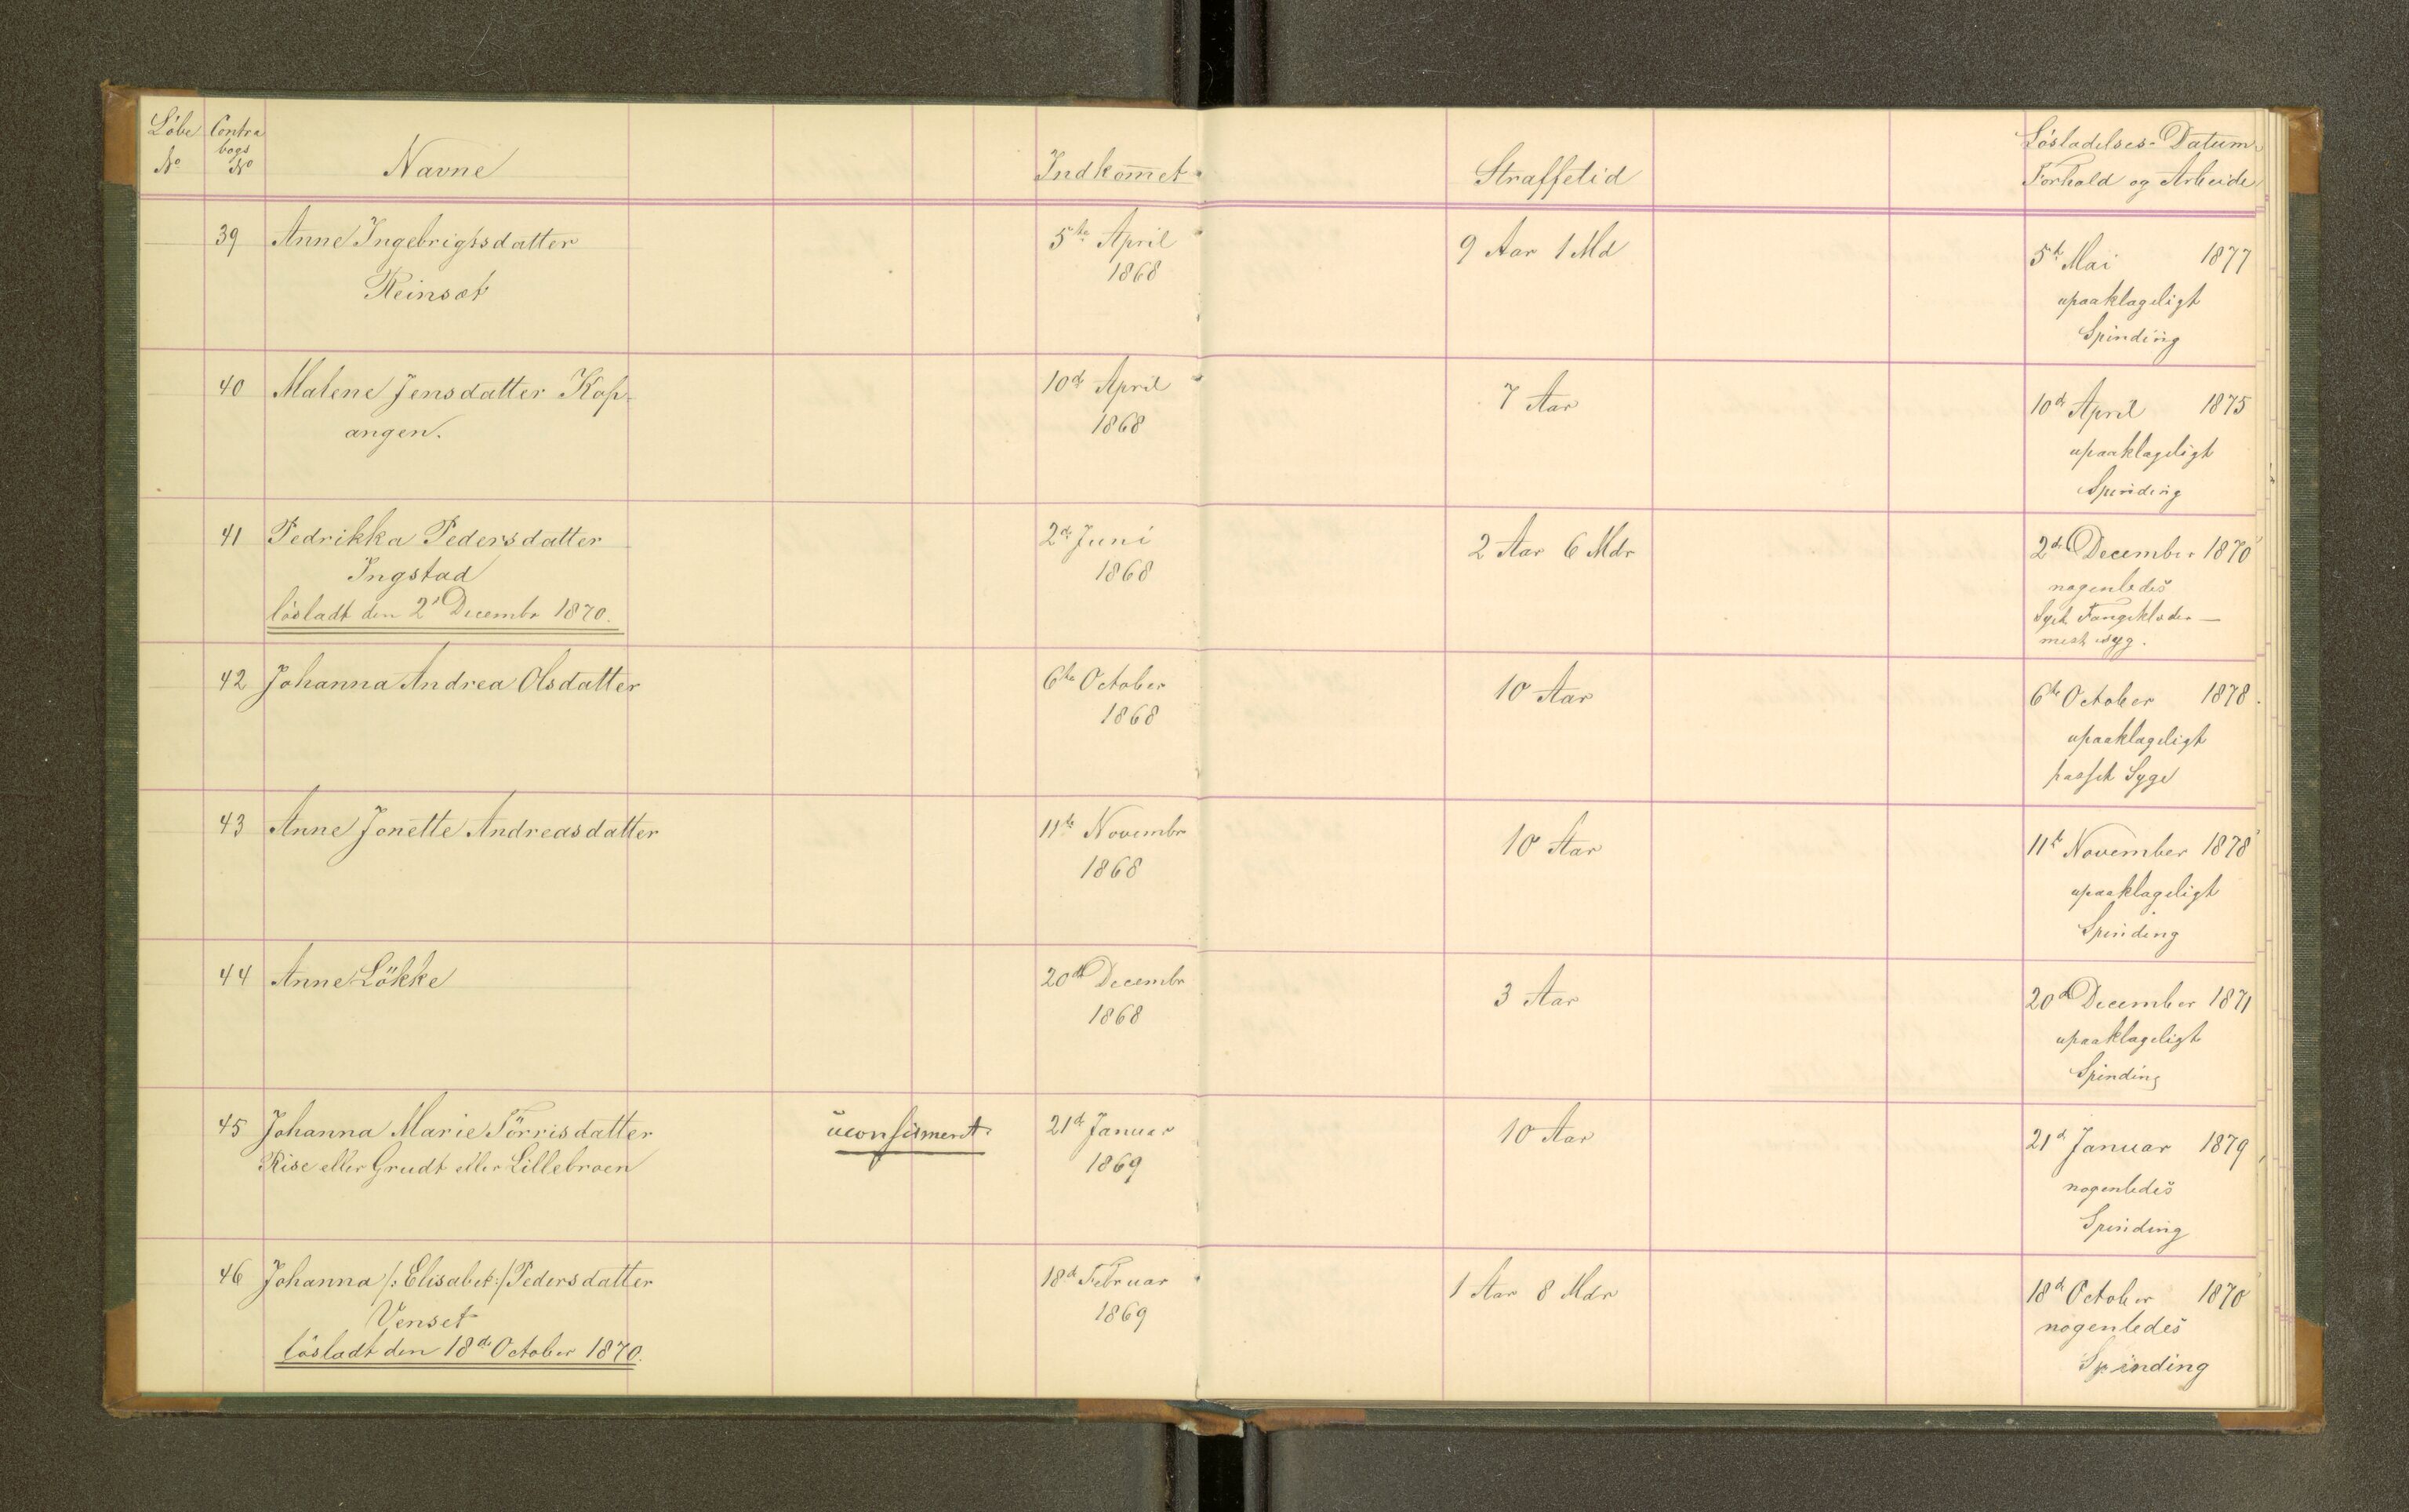 Löbe No
Contra bogs No
Navne
Indkomet
Straffetid
Lösladelses-Datum
Forhold og Arbeide
39 Anne Ingebrigtsdatter
Reinsæt
5te April
1868
9 Aar 1 Md
5te Mai 1877
upaaklageligt
Spinding
40 Malene Jensdatter Kop-
angen.
10de April
1868
7 Aar
10de April 1875
upaaklageligt
Spinding
41 Pedrikka Pedersdatter
Ingstad
lösladt den 2d Decembr 1870.
2de Juni
1868
2 Aar 6 Mdr
2de December 1870
nogenledes
Syet Fangeklæder
mest syg.
42 Johanna Andrea Olsdatter
6te October
1868
10 Aar
6te October 1878.
upaaklageligt
passet Syge
43 Anne Jonette Andreasdatter
11te Novembr
1868
10 Aar
11te November 1878
upaaklageligt
Spinding
44 Anne Lökke
20de Decembr
1868
3 Aar
20d December 1871
upaaklageligt
Spinding
45 Johanna Marie Törrisdatter
Rise eller Grudt eller Lillebroen
uconfirmeret.
21de Januar
1869
10 Aar
21d Januar 1879
nogenledes
Spinding
46 Johanna /: Elisabet :/ Pedersdatter
Venset
lösladt den 18de October 1870.
18d Februar
1869
1 Aar 8 Mdr
18d October 1870
nogenledes
Spinding